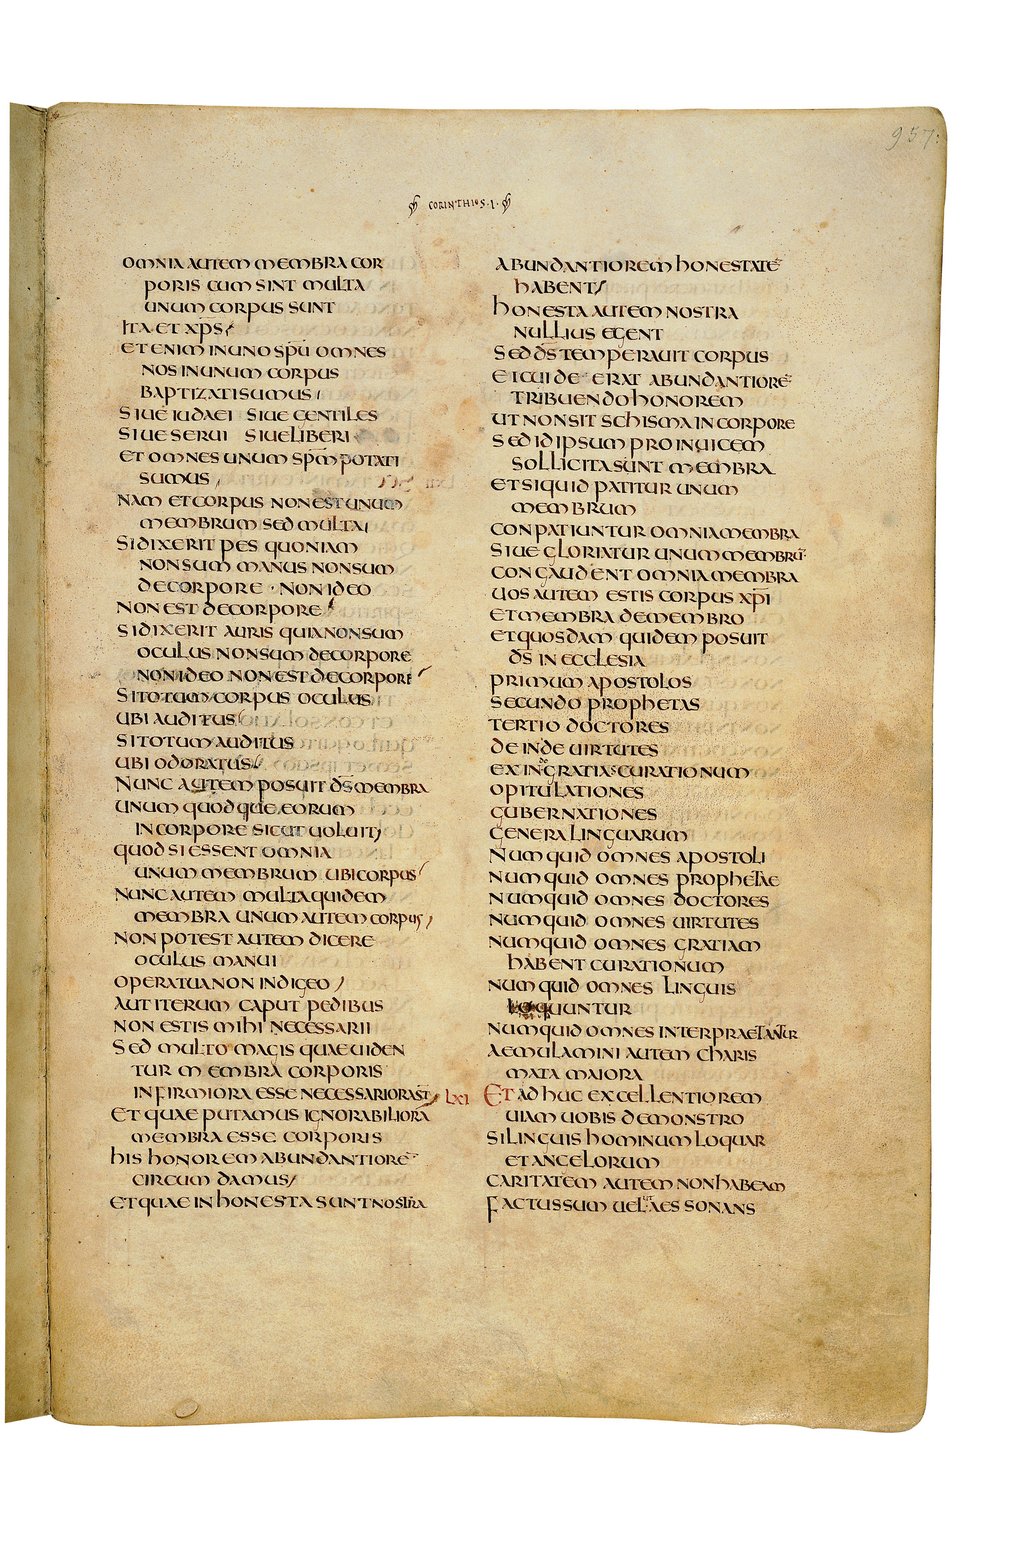 957:
CORINTHIOS·I·
OMNIA AUTEM MEMBRA COR
PORIS CUM SINT MULTA
UNUM CORPUS SUNT
ITA ET XP̅S
ETENIM IN UNO SPU̅ OMNES
NOS IN UNUM CORPUS
BAPTIZATI SUMUS
SIUE IUDAEI SIUE GENTILES
SIUE SERUI SIUE LIBERI
ET OMNES UNUM SPM̅ POTATI
SUMUS
NAM ET CORPUS NON EST UNUM
MEMBRUM SED MULTA
SI DIXERIT PES QUONIAM
NON SUM MANUS NON SUM
DE CORPORE · NON IDEO
NON EST DE CORPORE
SI DIXERIT AURIS QUIA NON SUM
OCULUS NON SUM DE CORPORE
NON IDEO NON EST DE CORPORE
SI TOTUM CORPUS OCULUS
UBI AUDITUS
SI TOTUM AUDITUS
UBI ODORATUS
NUNC AUTEM POSUIT D̅S MEMBRA
UNUM QUODQUE EORUM
IN CORPORE SICUT UOLUIT
QUOD SI ESSENT OMNIA
UNUM MEMBRUM UBI CORPUS
NUNC AUTEM MULTA QUIDEM
MEMBRA UNUM AUTEM CORPUS
NON POTEST AUTEM DICERE
OCULUS MANUI
OPERA TUA NON INDIGEO
AUT ITERUM CAPUT PEDIBUS
NON ESTIS MIHI NECESSARII
SED MULTO MAGIS QUAE UIDEN
TUR MEMBRA CORPORIS
INFIRMIORA ESSE NECESSARIORA ST̅
ET QUAE PUTAMUS IGNORABILIORA
MEMBRA ESSE CORPORIS
HIS HONOREM ABUNDANTIORE̅
CIRCUMDAMUS
ET QUAE INHONESTA SUNT NOSTRA
ABUNDANTIOREM HONESTATE̅
HABENT
HONESTA AUTEM NOSTRA
NULLIUS EGENT
SED D̅S TEMPERAUIT CORPUS
EI CUI DE·ERAT ABUNDANTIORE̅
TRIBUENDO HONOREM
UT NON SIT SCHISMA IN CORPORE
SED ID IPSUM PRO INUICEM
SOLLICITA SUNT MEMBRA
ET SI QUID PATITUR UNUM
MEMBRUM
CONPATIUNTUR OMNIA MEMBRA
SIUE GLORIATUR UNUM MEMBRU̅
CONGAUDENT OMNIA MEMBRA
UOS AUTEM ESTIS CORPUS XP̅I
ET MEMBRA DE MEMBRO
ET QUOSDAM QUIDEM POSUIT
D̅S IN ECCLESIA
PRIMUM APOSTOLOS
SECUNDO PROPHETAS
TERTIO DOCTORES
DEINDE UIRTUTES
EXIN GRATIAS CURATIONUM
OPITULATIONES
GUBERNATIONES
GENERA LINGUARUM
NUMQUID OMNES APOSTOLI
NUMQUID OMNES PROPHETAE
NUMQUID OMNES DOCTORES
NUMQUID OMNES UIRTUTES
NUMQUID OMNES GRATIAM
HABENT CURATIONUM
NUMQUID OMNES LINGUIS
LOQUUNTUR
NUMQUID OMNES INTERPRAETANTUR
AEMULAMINI AUTEM CHARIS
MATA MAIORA
LXI ET ADHUC EXCELLENTIOREM
UIAM UOBIS DEMONSTRO
SI LINGUIS HOMINUM LOQUAR
ET ANGELORUM
CARITATEM AUTEM NON HABEAM
FACTUS SUM UEL·UT AES SONANS